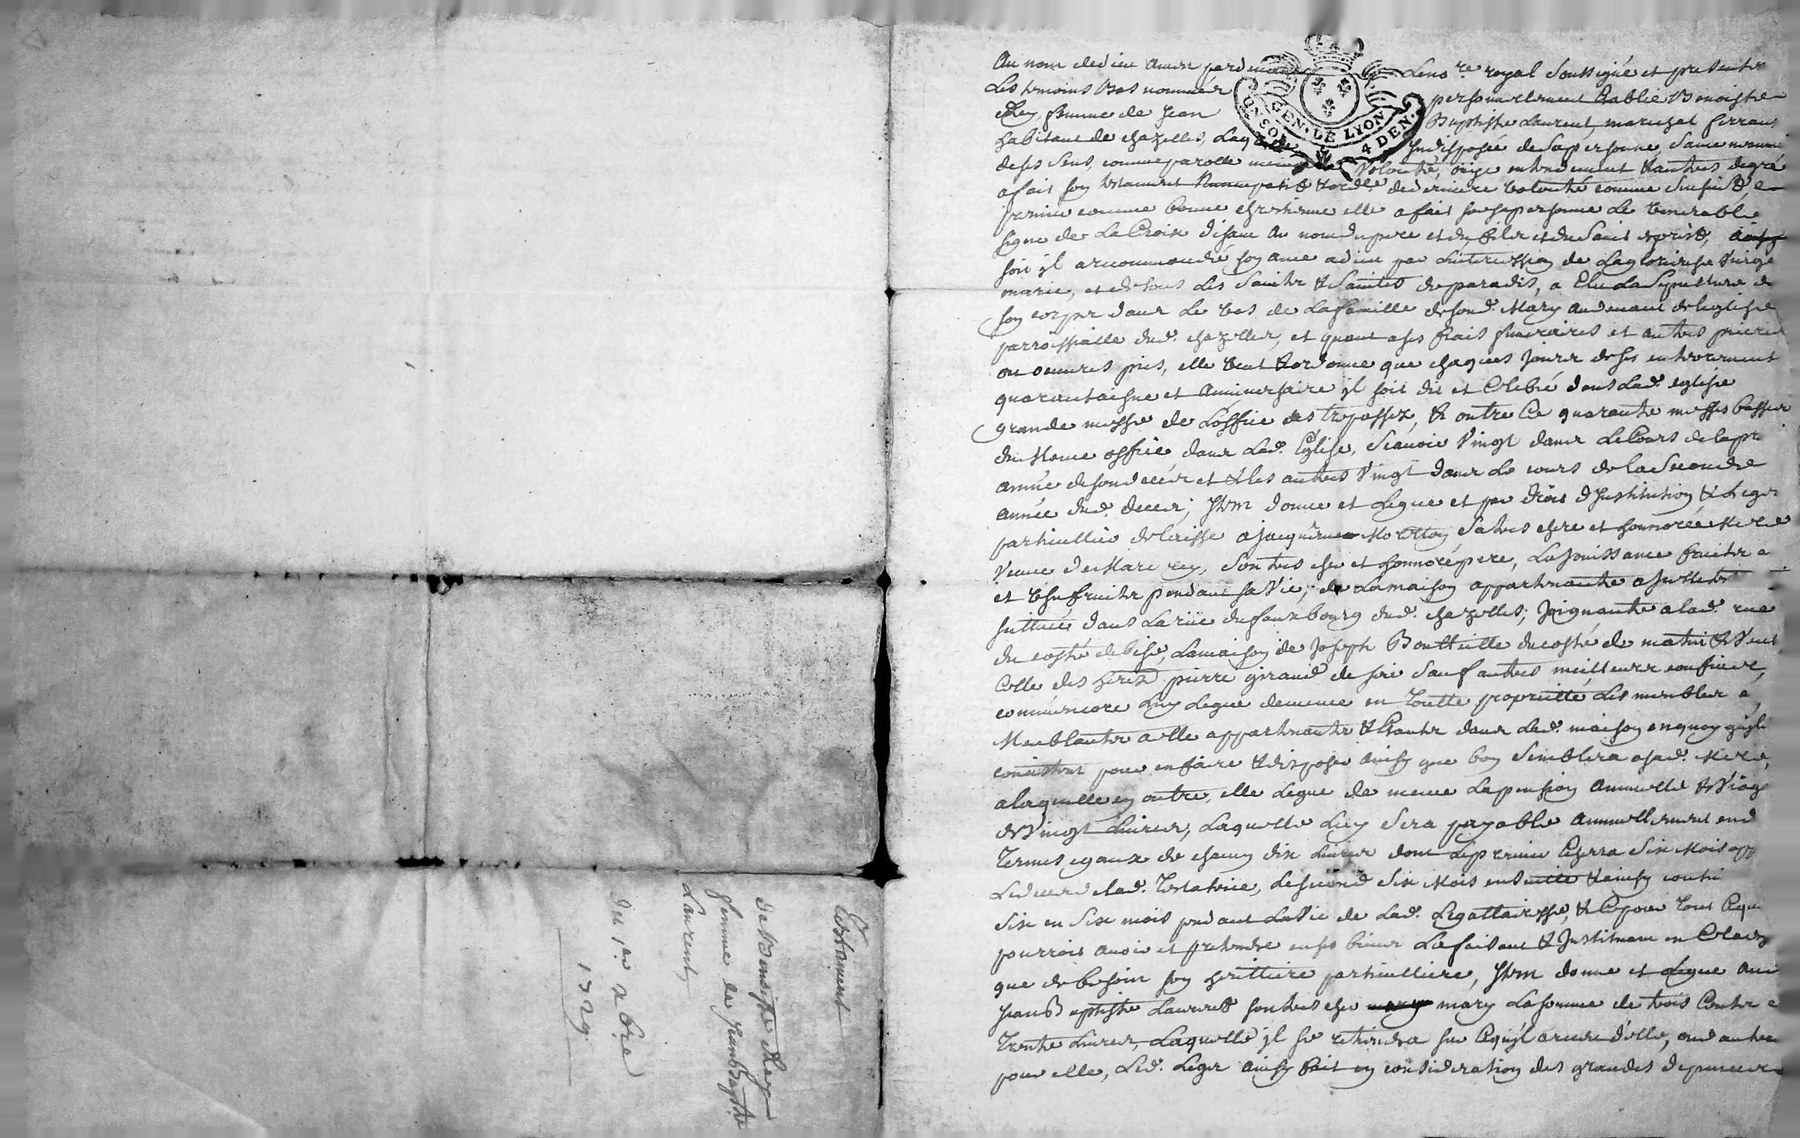 Testament
de Benoiste Rey
femme de Jean Baptiste
Laurent,
du 1er Xbre
1729
GEN. DE LYON
4 DEN.
Au nom de dieu Amen par devant Le no.re royal soussigné et presents
Les temoins bas nommés personnelement établie Benoiste
Rey femme de Jean Baptiste Laurent, marechal ferrant
habitant de chazelles, Laquelle Indisposée de sa personne, saine
de ses sens, comme parolle memoire volonté, ouye entendement & autres de gré
a fait son testament nuncupatif & ord.e de derniere volonté comme s'ensuit &
premier comme bonne chrestienne elle a fait sur sa personne Le venerable
signe de La Croix disant Au nom du pere et du fils et du Saint esprit,
soit il a recommandé son ame a dieu par L'intercession de La glorieuse Vierge
marie, et de tous Les Saints & Saintes de paradis, a Elu La Sepulture de
son corps dans Le vas de La famille de son d. Mary au devant de l'eglise
parroissialle dud. chazelles, et quant a ses frais funeraires et autres prieres
ou oeuvres pies, elle veut & ordonne que chaques jours de ses enterrement
quarantaine et Anniversaire il soit dit et Celebré dans Lad. eglise
grande messe de L'office des trepassez, & outre Ce quarante messes basses
du Meme office dans Lad. Eglise, Scavoir Vingt dans Le Cours de la pre
année de son decés et & Les autres Vingt dans Le cours de la Seconde
année dud. decés; Item donne et Legue et par droit d'Institution & Leger
particullier delaisse a Jacquemine Sa tres chere et honnorée Mere
Veuve de Marc rey, Son tres cher et honnoré pere, La jouissance fruits
et Usufruits pendant sa Vie, de La maison appartenante a
situee dans La rüe du fauxbourg dud. chazelles, joignante a lad. rue
du costé de bise, La maison de Joseph Boutteille du costé de matin & Vent
Celle des heirs pierre giraud de soir sauf autres meilleurs confins,
comm'encore Luy Legue de meme en toutte proprietté Les meubles
Meublants a elle appartenants & Etants dans Lad. maison en quoy qu'ils
consistent pour en faire & disposer ainsy que bon Semblera a sad. Mere,
a laquelle en outre, elle Legue de meme La pension Annuelle & Viag
de Vingt Livres, Laquelle Luy Sera payable Annuellement en d
termes egaux de chacun dix Livres dont Le premier Echerra Six Mois app
Le deceds de lad. Testatrice, Le second Six Mois ensuitte & ainsy conti
Six en Six mois pendant La Vie de Lad. Legattairesse, & Ce pour tout Ce qu
pourroit avoir et pretendre en ses biens La faisant & Instituant en Ce
que de besoin son herittiere particulliere, Item donne et Legue
Jean Baptiste Laurent son tres cher mary La somme de trois Cents
Trente Livres, Laquelle il se retiendra sur Ce qu'il a receu d'elle, ou d'autres
pour elle, Led. Leger ainsy fait en consideration des grandes depenses